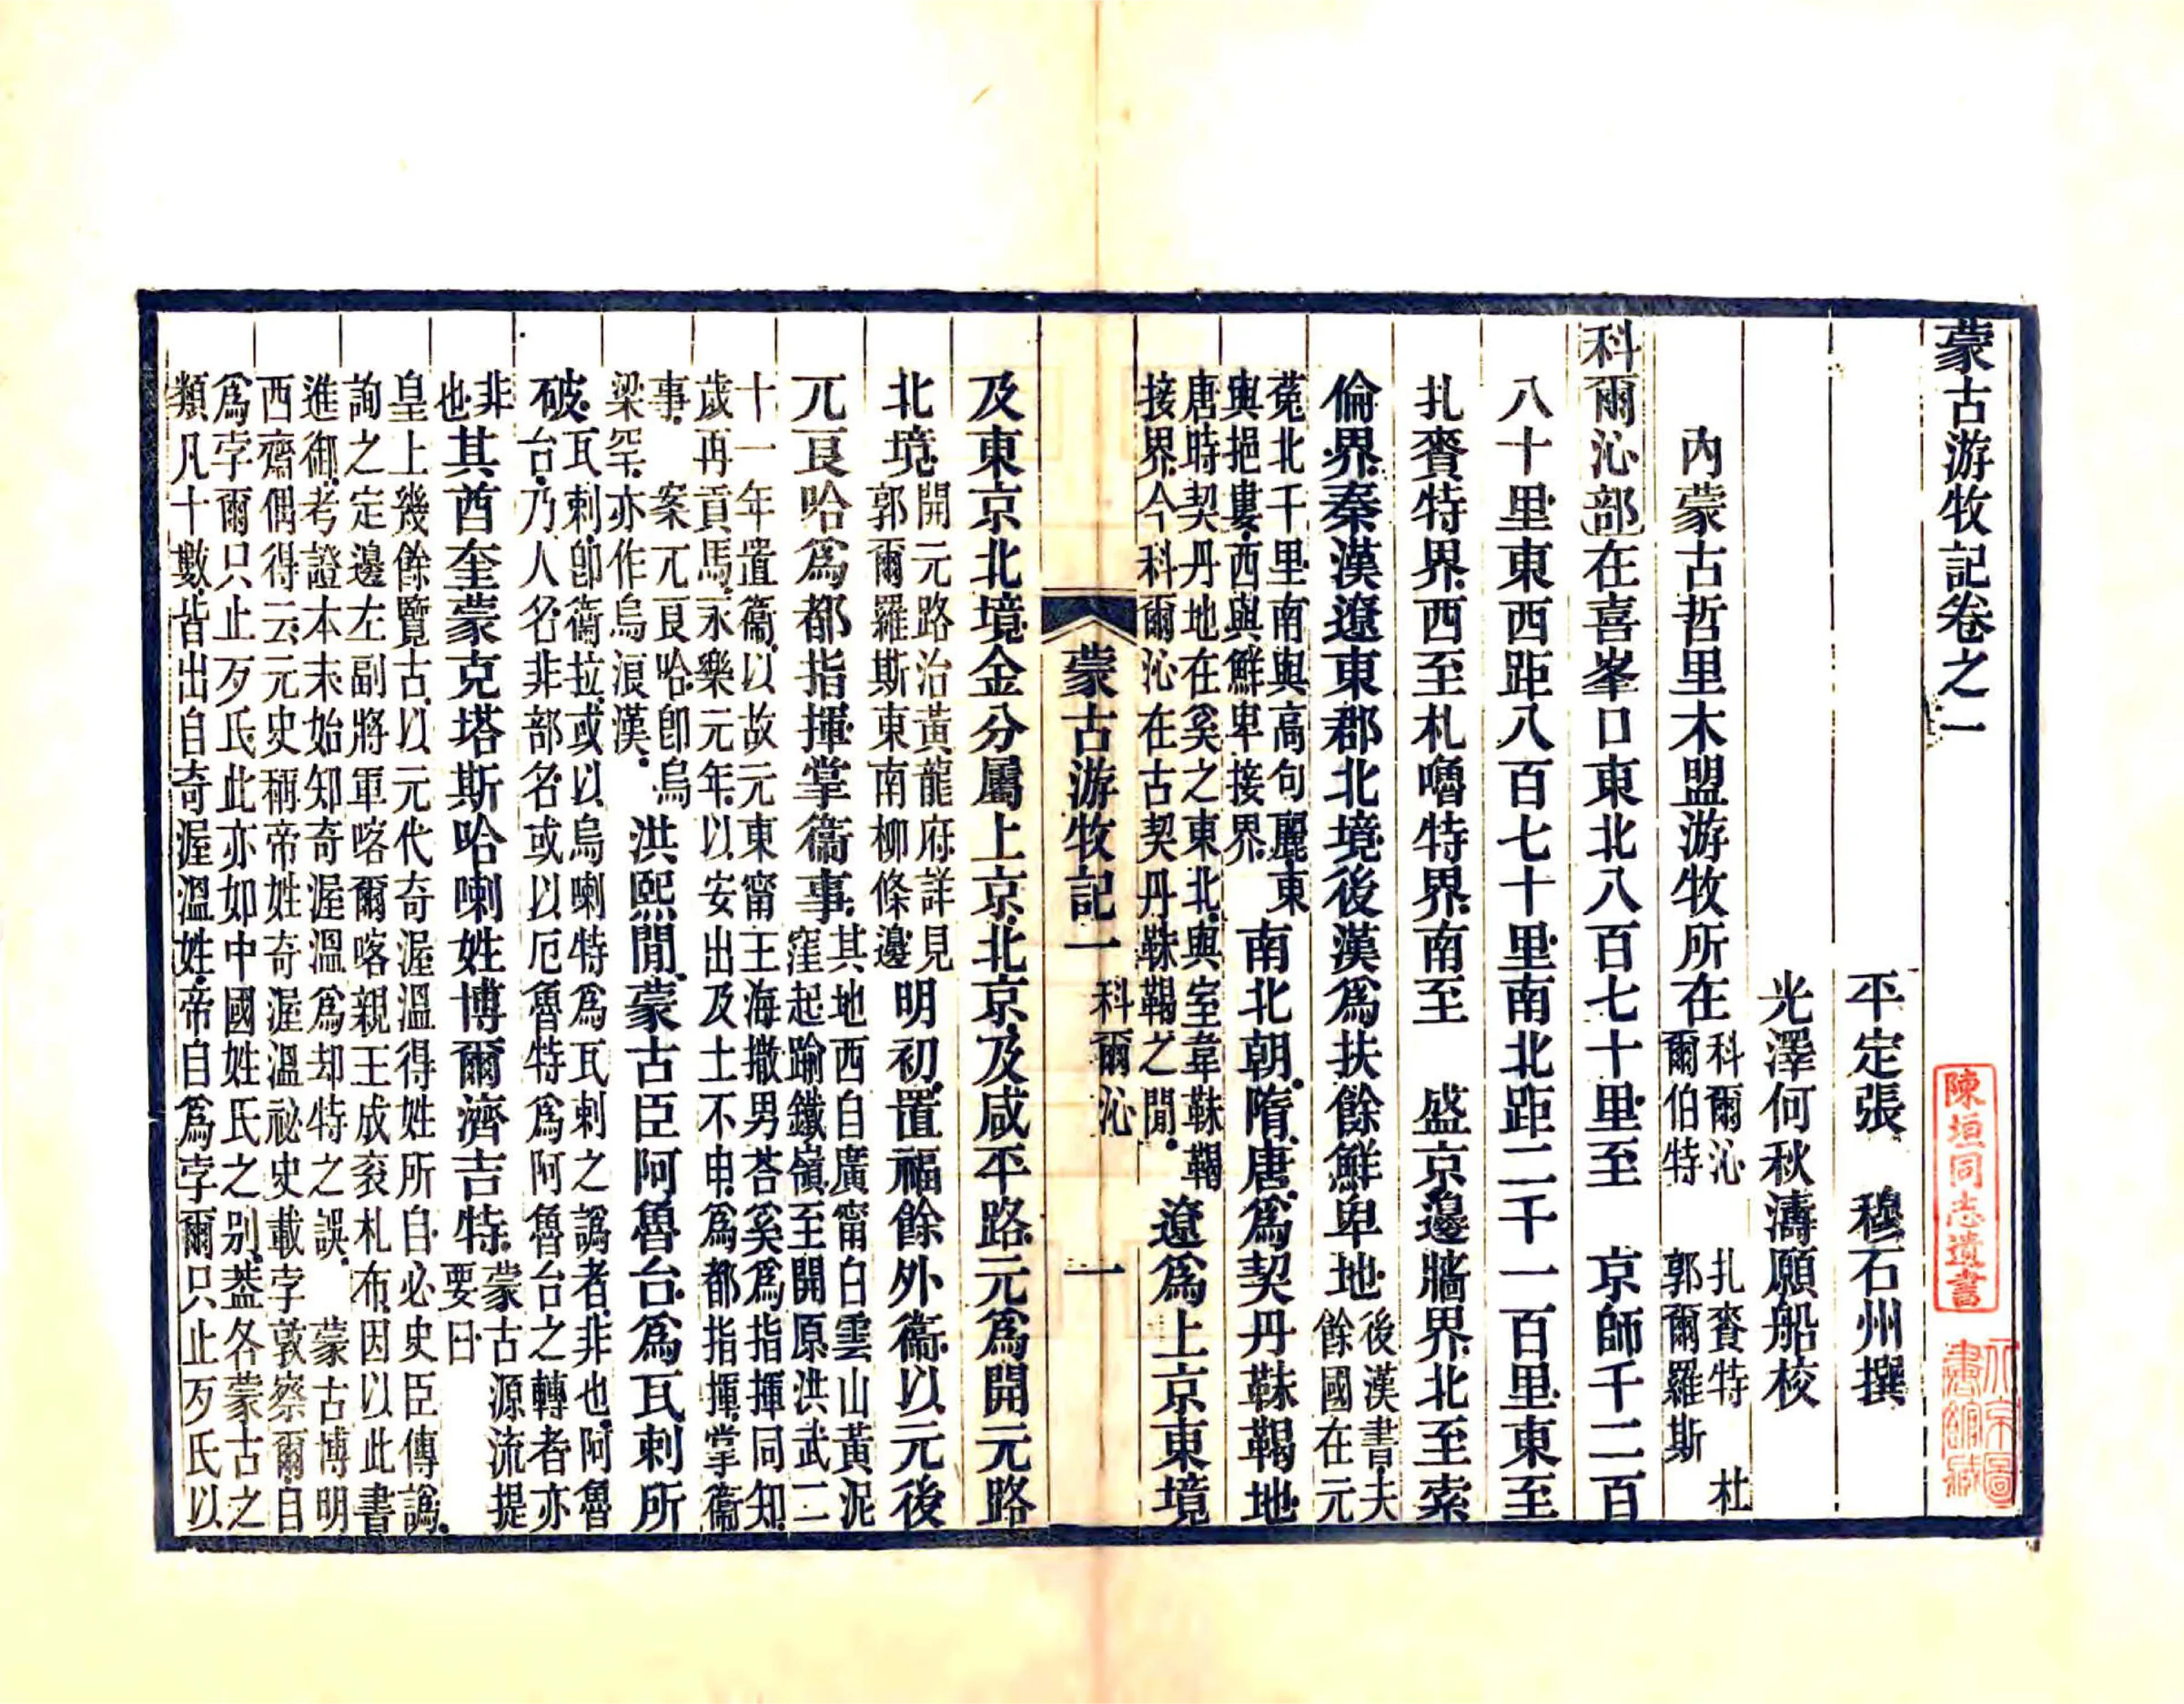 蒙古游牧記卷之一
陳垣同志遺書
北京圖書館藏
平定張　穆石州撰
光澤何秋濤願船校
內蒙古哲里木盟游牧所在
科爾沁　扎賚特　杜
爾伯特　郭爾羅斯
科爾沁部在喜峯口東北八百七十里至　京師千二百
八十里東西距八百七十里南北距二千一百里東至
扎賚特界西至札嚕特界南至　盛京邊牆界北至索
倫界秦漢遼東郡北境後漢爲扶餘鮮卑地
後漢書夫
餘國在元
菟北千里南與高句麗東
與挹婁西與鮮卑接界
南北朝隋唐爲契丹靺鞨地
唐時契丹地在奚之東北與室韋靺鞨
接界今科爾沁在古契丹靺鞨之閒
遼爲上京東境
蒙古游牧記一　科爾沁　一
及東京北境金分屬上京北京及咸平路元爲開元路
北境
開元路治黃龍府詳見
郭爾羅斯東南柳條邊
明初置福餘外衞以元後
兀良哈爲都指揮掌衞事
其地西自廣甯白雲山黃泥
窪起踰鐵嶺至開原洪武二
十一年置衞以故元東甯王海撒男荅奚爲指揮同知
歲再貢馬永樂元年以安出及土不申爲都指揮掌衞
事　案兀良哈卽烏
梁罕亦作烏浪漢
洪熙閒蒙古臣阿魯台爲瓦剌所
破
瓦剌卽衞拉或以烏喇特爲瓦剌之譌者非也阿魯
台乃人名非部名或以厄魯特爲阿魯台之轉者亦
非
也
其酋奎蒙克塔斯哈喇姓博爾濟吉特
蒙古源流提
要曰
皇上幾餘覽古以元代奇渥溫得姓所自必史臣傳譌
詢之定邊左副將軍喀爾喀親王成衮札布因以此書
進御考證本末始知奇渥溫爲却特之誤　蒙古博明
西齋偶得云元史稱帝姓奇渥溫祕史載孛敦察爾自
爲孛爾只止歹氏此亦如中國姓氏之別葢各蒙古之
類凡十數皆出自奇渥溫姓帝自爲孛爾只止歹氏以